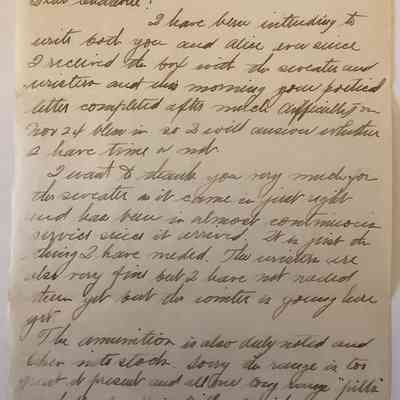 Dear
I have been intending to
write both you and Alice ever since
I received the box with the sweater and
wristers and this morning your poetical
letter completed after much difficulty on
Nov 24 blew in so I will answer whether
I have time or not.
I want to thank you very much for
the sweater as it came in just right
and has been in almost continuous
service since it arrived. It is just the
thing I have needed. The wristers are
also very fine but I have not needed
them yet but the winter is young here
yet.
The amunition is also duly noted and
taken into stock. Sorry the range is too
great at present and all our long range "pills"